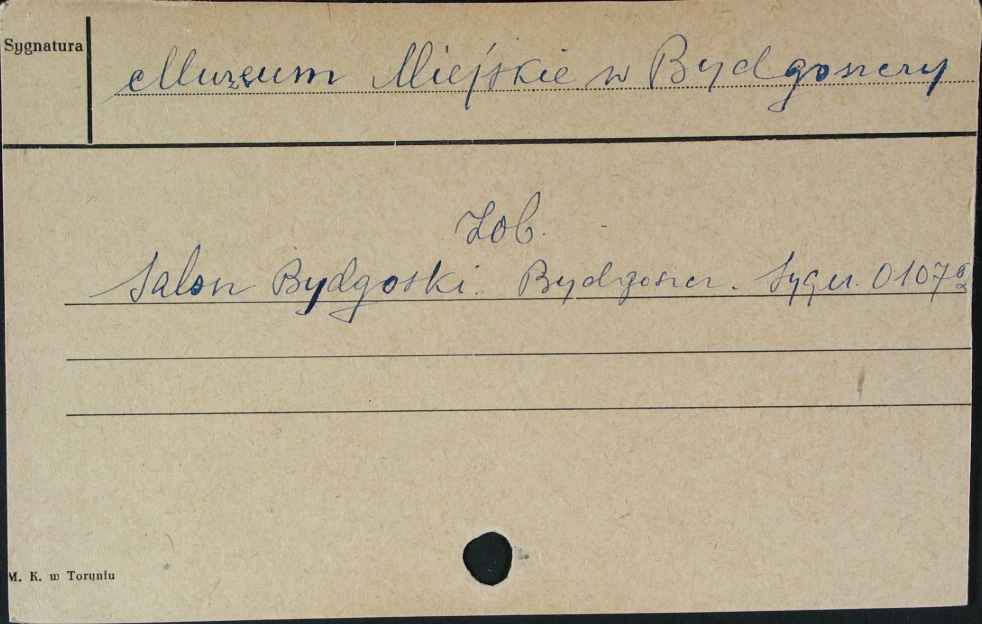 Sygnatura
Muzeum Miejskie w Bydgoszczy
Zob.
Salon Bydgoski. Bydgoszcz. Sygn. 0107
M. K. w Toruniu